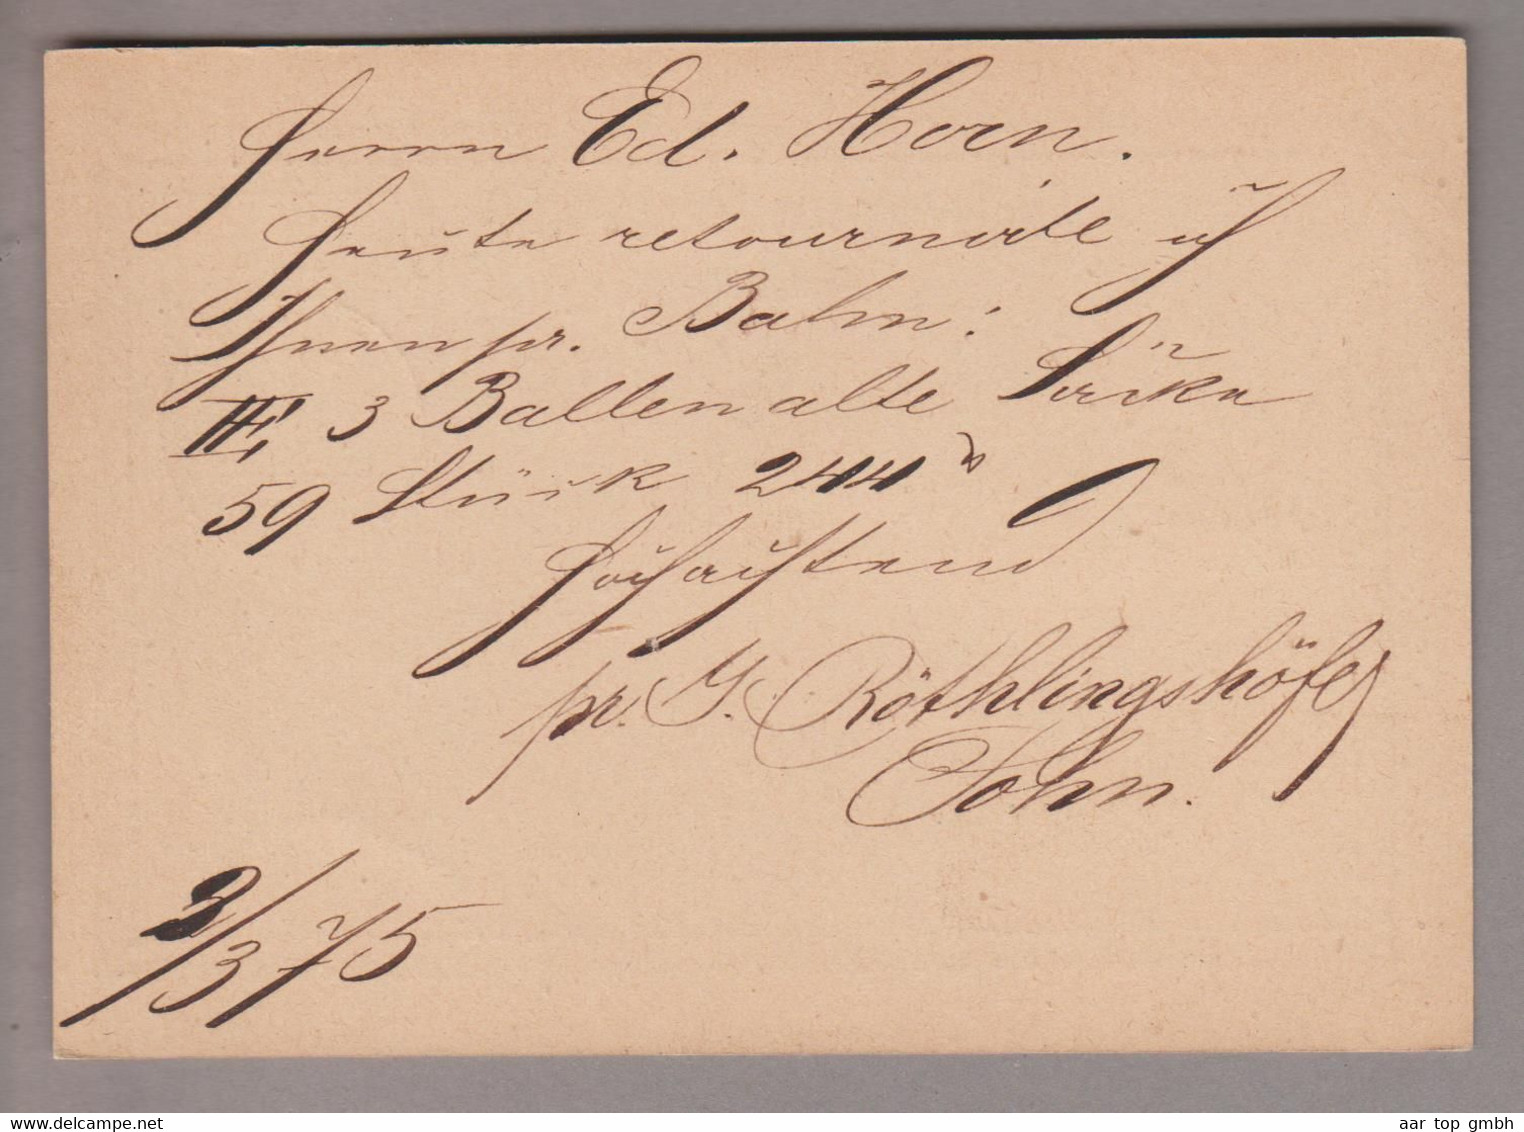 Herrn Ed. Horn.
Heute retournirte ich
Ihnen pr. Bahn:
3 Ballen alte Säcke
59 Stück 244 ℔
Hochachtend
pr. G. Röthlingshöfer
Sohn.
3/3 75
aar top gmbh
delcampe.net